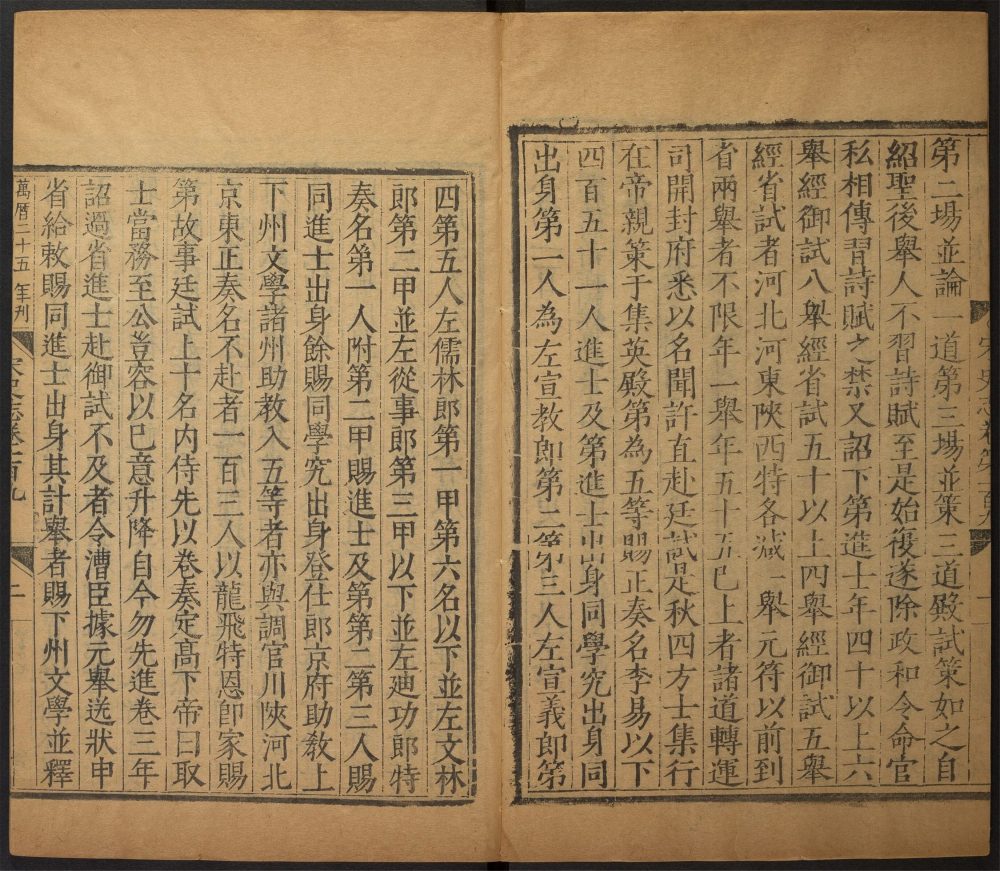 第二場並論一道第三場並策三道殿試策如之自
紹聖後舉人不習詩賦至是始復遂除政和令命官
私相傳習詩賦之禁又詔下第進士年四十以上六
舉經御試八舉經省試五十以上四舉經御試五舉
經省試者河北河東陝西特各減一舉元符以前到
省兩舉者不限年一舉年五十五已上者諸道轉運
司開封府悉以名聞許直赴廷試是秋四方士集行
在帝親策于集英殿第為五等賜正奏名李易以下
四百五十一人進士及第進士出身同學究出身同
出身第一人為左宣教郎第二第三人左宣義郎第
宋史志卷第一百九
四第五人左儒林郎第一甲第六名以下並左文林
郎第二甲並左從事郎第三甲以下並左廸功郎特
奏名第一人附第二甲賜進士及第第二第三人賜
同進士出身餘賜同學究出身登仕郎京府助教上
下州文學諸州助教入五等者亦與調官川陝河北
京東正奏名不赴者一百三人以龍飛特恩即家賜
第故事廷試上十名内侍先以卷奏定髙下帝曰取
士當務至公豈容以己意升降自今勿先進卷三年
詔過省進士赴御試不及者令漕臣據元舉送狀申
省給敕賜同進士出身其計舉者賜下州文學並釋
萬曆二十五年刋
宋史志卷一百九
二